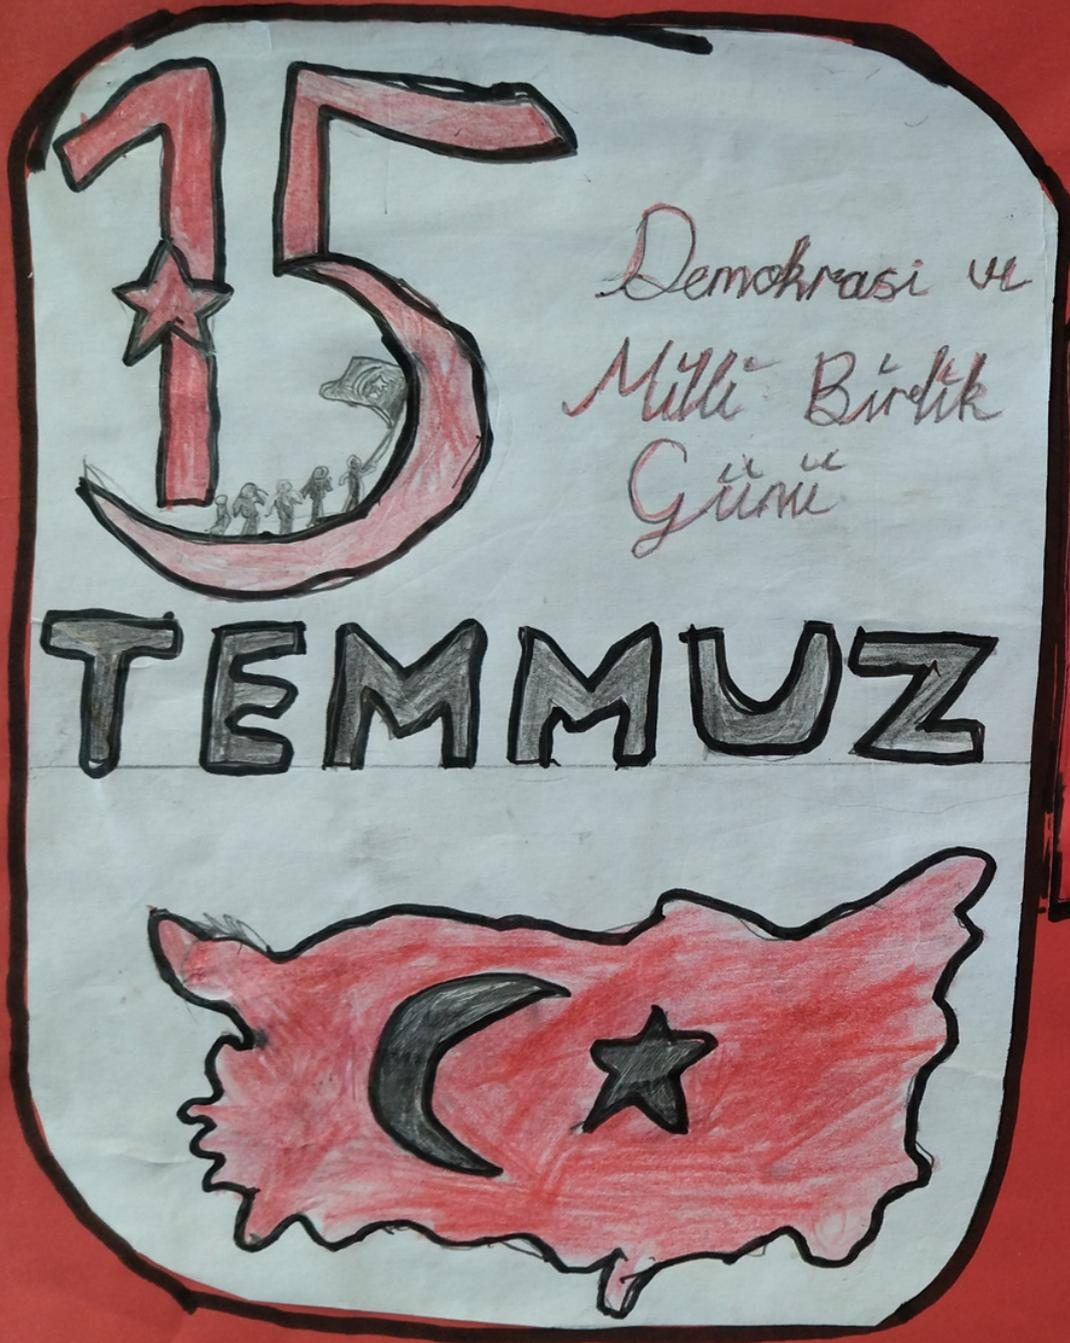 15
Demokrasi ve
Milli Birlik
Günü
TEMMUZ